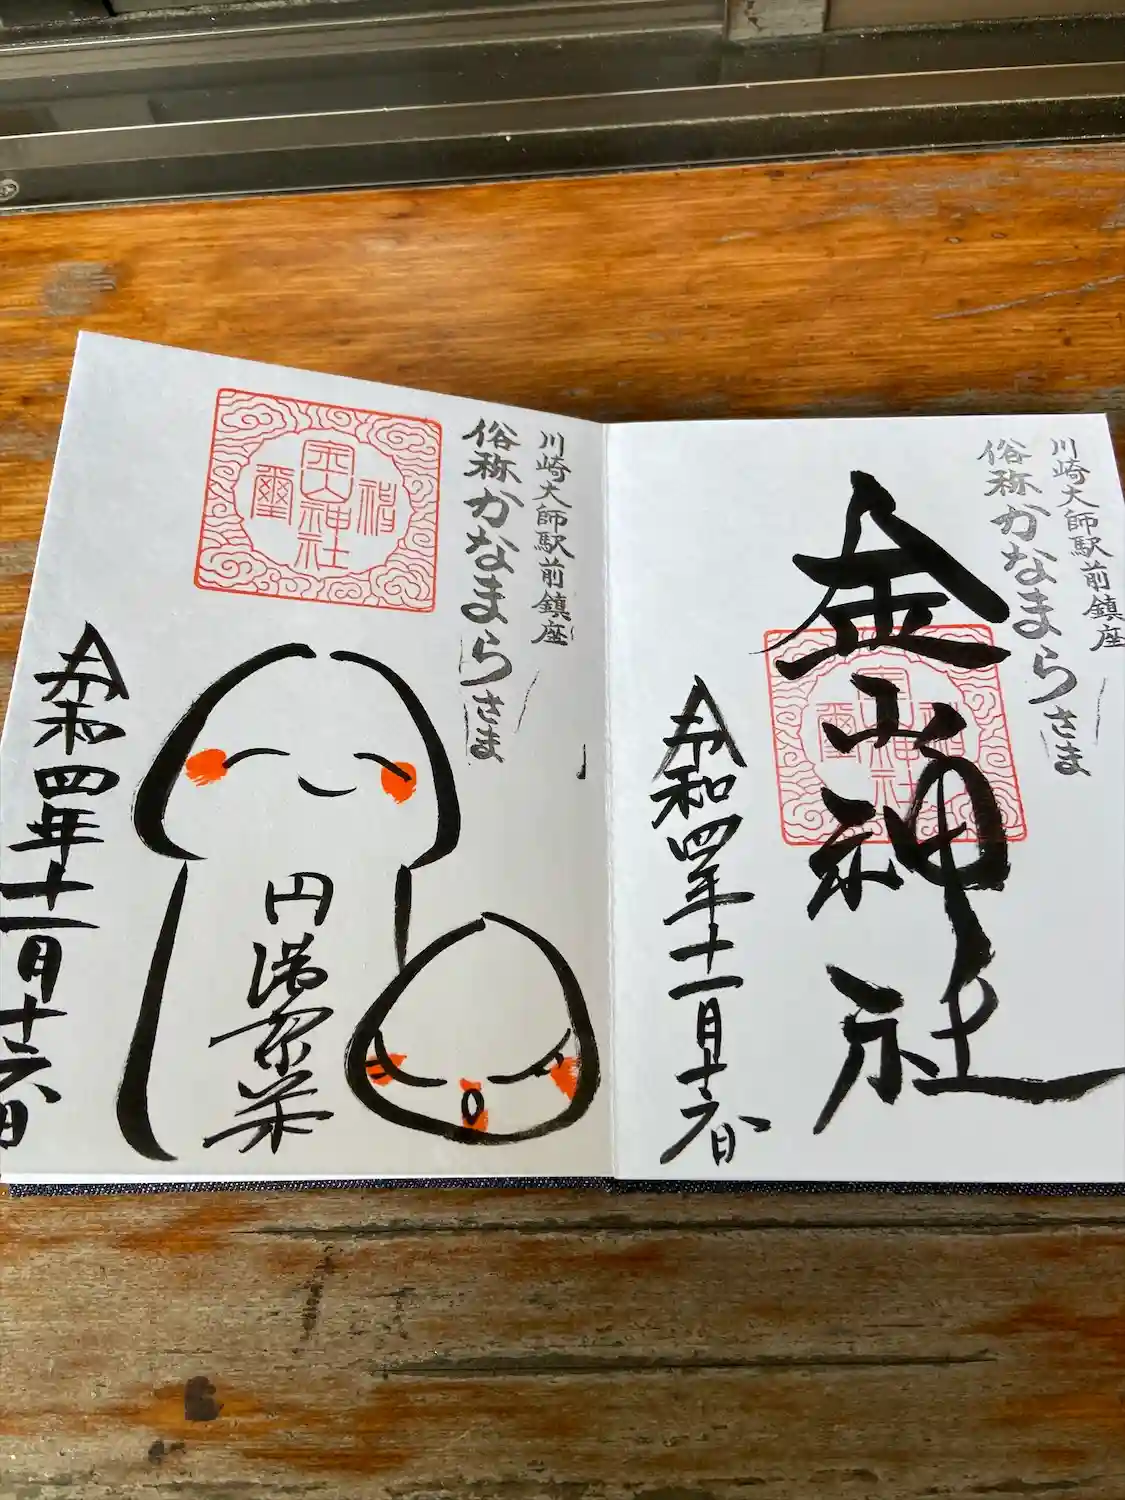 川崎大師駅前鎮座
俗称かなまらさま
金山神社
金山神社
令和四年十一月十六日
川崎大師駅前鎮座
俗称かなまらさま
金山神社
円満家栄
令和四年十一月十六日